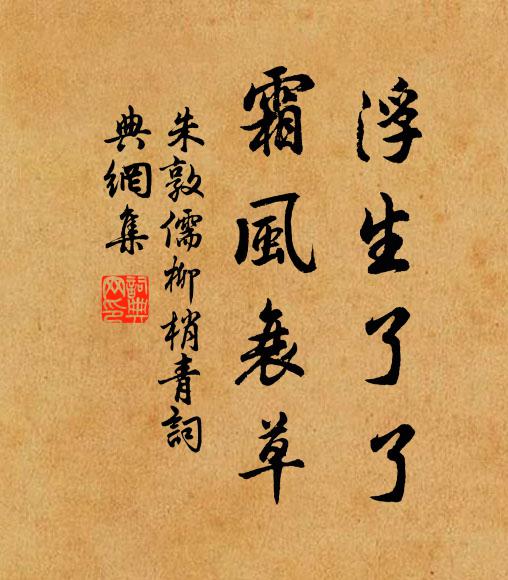 浮生了了
霜風衰草
朱敦儒柳梢青詞
典網集
詞典網印